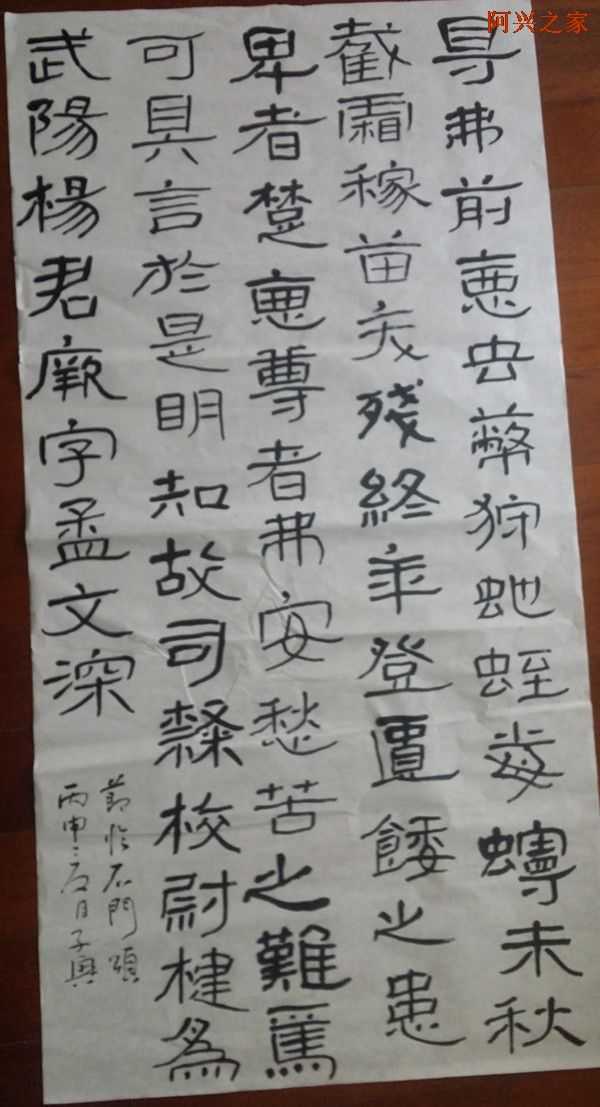 阿兴之家
㝵弗前惡虫蔽狩虵蛭毒未秋
截霜稼苗夭殘終年登匱餧之患
卑者楚惡尊者弗安愁苦之難焉
可具言於是明知故司隸校尉楗為
武陽楊君厥字孟文深
節臨石門頌
丙申夏日子興